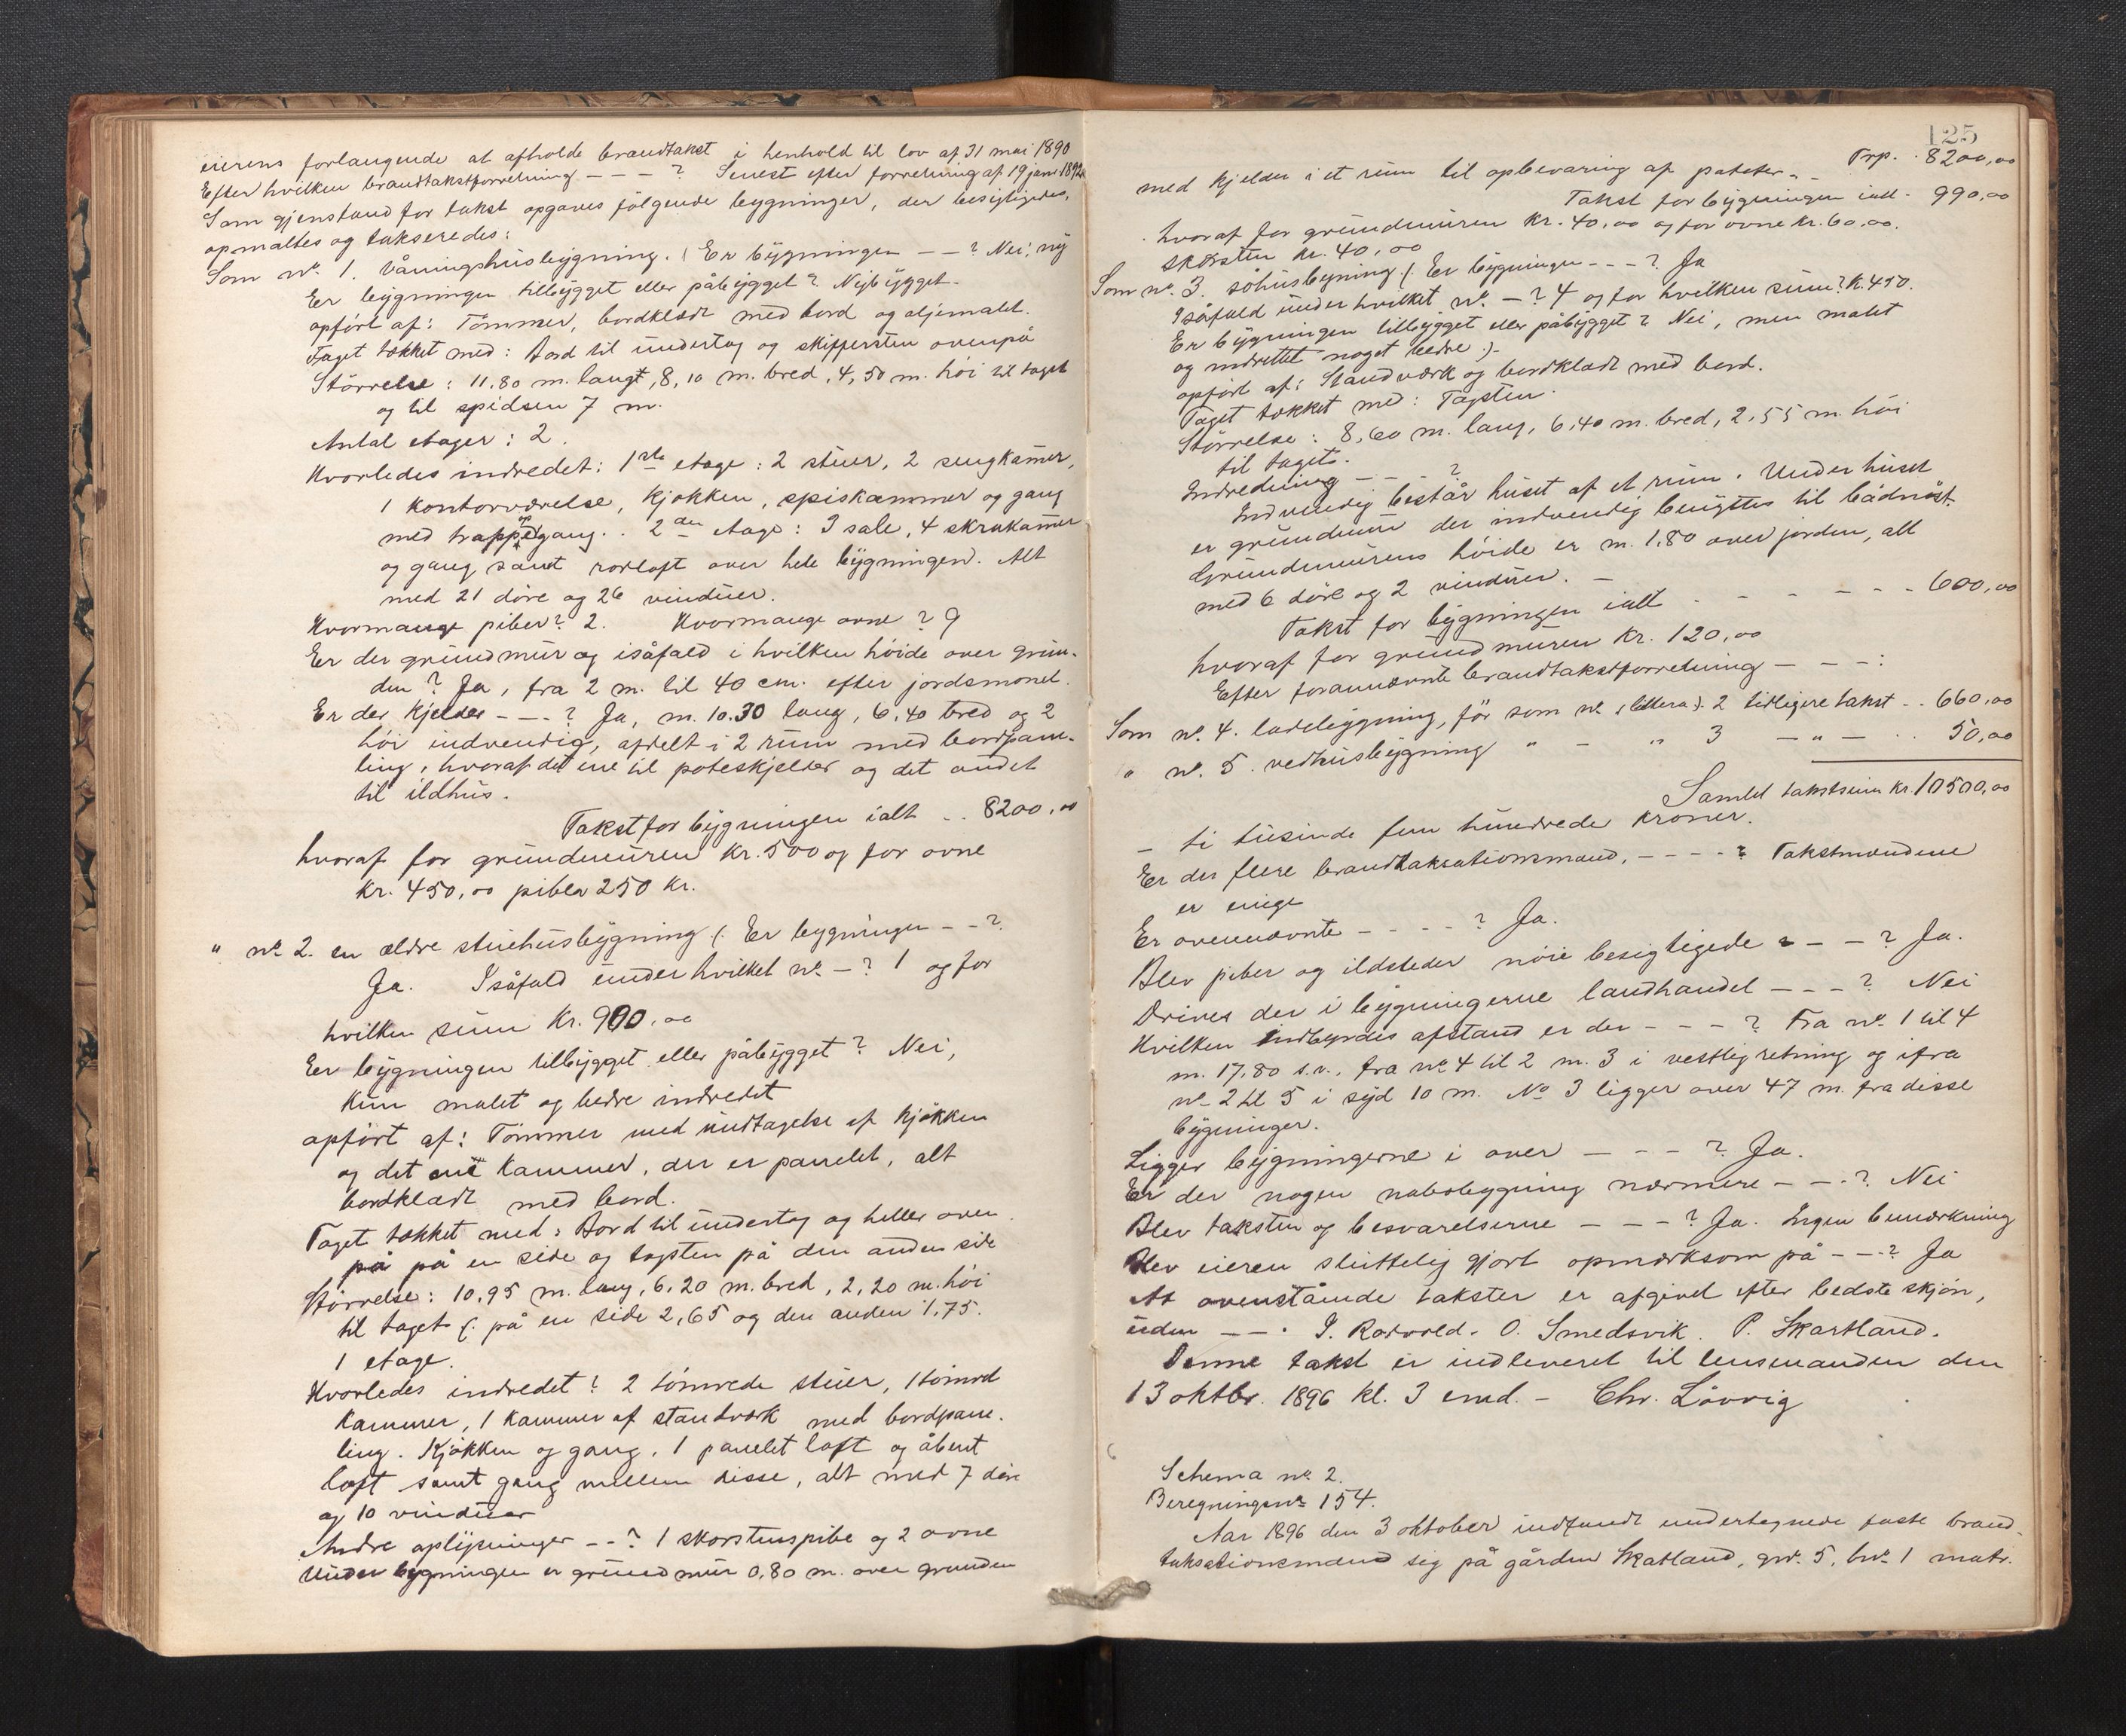 eierens forlangende at afholde brandtakst i henhold til lov af 31 mai 1890
Efter hvilken brandtakstforretning – – – ? Senest efter forretning af 19 jan. 1892
Som gjenstand for takst opgaves følgende bygninger, der besigtigedes,
opmaltes og takseredes:
Som no. 1. Våningshusbygning. (Er bygningen – – ? Nei, ny
Er bygningen tilbygget eller påbygget? Nybygget.
opført af: Tømmer, bordklædt med bord og oljemalet.
Taget tækket med: Bord til undertag og skiffersten ovenpå
Størrelse: 11,80 m. langt, 8,10 m. bred, 4,50 m. høi til taget
og til spidsen 7 m.
Antal etager: 2.
Hvorledes indredet: 1ste etage: 2 stuer, 2 sengkamer,
1 kontorværelse, kjøkken, spiskammer og gang
med trappeopgang. 2den etage: 3 sale, 4 skråkamer
og gang samt rorloft over hele bygningen. Alt
med 21 døre og 26 vinduer.
Hvormange piber? 2. Hvormange ovne? 9
Er der grundmur og isåfald i hvilken høide over grun-
den? Ja, fra 2 m. til 40 cm. efter jordsmonet.
Er der kjelder – – – ? Ja, m. 10.30 lang, 6,40 bred og 2
høi indvendig, afdelt i 2 rum med bordpane-
ling, hvoraf det ene til poteskjelder og det andet
til ildhus.
Takst for bygningen ialt .. 8200,00
hvoraf for grundmuren kr. 500 og for ovne
kr. 450,00 piber 250 kr.
" no. 2. en ældre stuehusbygning (. Er bygningen – – ?
Ja. Isåfald under hvilket no. – ? 1 og for
hvilken sum kr. 900,00
Er bygningen tilbygget eller påbygget? Nei,
kun malet og bedre indredet
opført af: Tømmer med undtagelse af kjøkken
og det ene kammer, der er panelet, alt
bordklædt med bord.
Taget tækket med: Bord til undertag og heller oven
på på en side og tagsten på den anden side
Størrelse: 10,95 m. lang, 6,20 m. bred, 2,20 m. høi
til taget (: på en side 2,65 og den anden 1,75.
1 etage.
Hvorledes indredet? 2 tømrede stuer, 1 tømret
kammer, 1 kammer af standværk med bordpane-
ling. Kjøkken og gang. 1 panelet loft og åbent
loft samt gang mellem disse, alt med 7 døre
og 10 vinduer
Andre oplysninger – – ? 1 skorstenspibe og 2 ovne
Under bygningen er grundmur 0,80 m. over grunden
125
Trp. 8200,00
med kjelder i et rum til opbevaring af poteter. –
Takst for bygningen ialt – 990,00
hvoraf for grundmuren kr. 40,00 og for ovne kr. 60,00.
skorsten kr. 40,00
Som no. 3. søhusbygning (. Er bygningen – – – ? Ja
Isåfald under hvilket no. – ? 4 og for hvilken sum? k. 450.
Er bygningen tilbygget eller påbygget? Nei, men malet
og indrettet noget bedre.)
opført af: Standværk og bordklædt med bord.
Taget tækket med: Tagsten.
Størrelse: 8,60 m. lang, 6,40 m. bred, 2,55 m. høi
til taget.
Indredning – – – ?
Indvendig består huset af et rum. Under huset
er grundmur der indvendig benyttes til bådnøst.
Grundmurens høide er m. 1,80 over jorden, alt
med 6 døre og 2 vinduer. –
Takst for bygningen ialt – – – – – – 600,00
hvoraf for grundmuren kr. 120,00
Efter forannævnte brandtakstforretning – – – :
Som no. 4. ladebygning, før som no. (littera). 2 tidligere takst .. 660,00
" no. 5. vedhusbygning " – " 3 – " – .. 50,00
Samlet takstsum kr. 10500,00
– ti tusinde fem hundrede kroner.
Er der flere brandtaksationsmænd, – – – – ? Takstmændene
er enige
Er ovennævnte – – – – ? Ja.
Blev piber og ildsteder nøie besigtigede – – – ? Ja.
Drives der i bygningerne landhandel – – – ? Nei
Hvilken indbyrdes afstand er der – – – ? Fra no. 1 til 4
m. 17,80 s.v., fra no. 4 til 2 m. 3 i vestlig retning og ifra
no. 2 til 5 i syd 10 m. No 3 ligger over 47 m. fra disse
bygninger.
Ligger bygningerne i over – – – ? Ja.
Er der nogen nabobygning nærmere – – – ? Nei
Blev taksten og besvarelserne – – – ? Ja. Ingen bemærkning
Blev eieren sluttelig gjort opmærksom på – – ? Ja
At ovenstående takster er afgivet efter bedste skjøn,
uden – – . O. Smedsvik. P. Skartland.
Denne takst er indleveret til lensmanden den
13 oktbr. 1896 kl. 3 emd. – Chr. Løvvig
Schema no. 2.
Beregningsno 154.
Aar 1896 den 3 oktober indfandt undertegnede faste brand-
taksationsmænd sig på gården Skatland, gno. 5, bno. 1 matr.